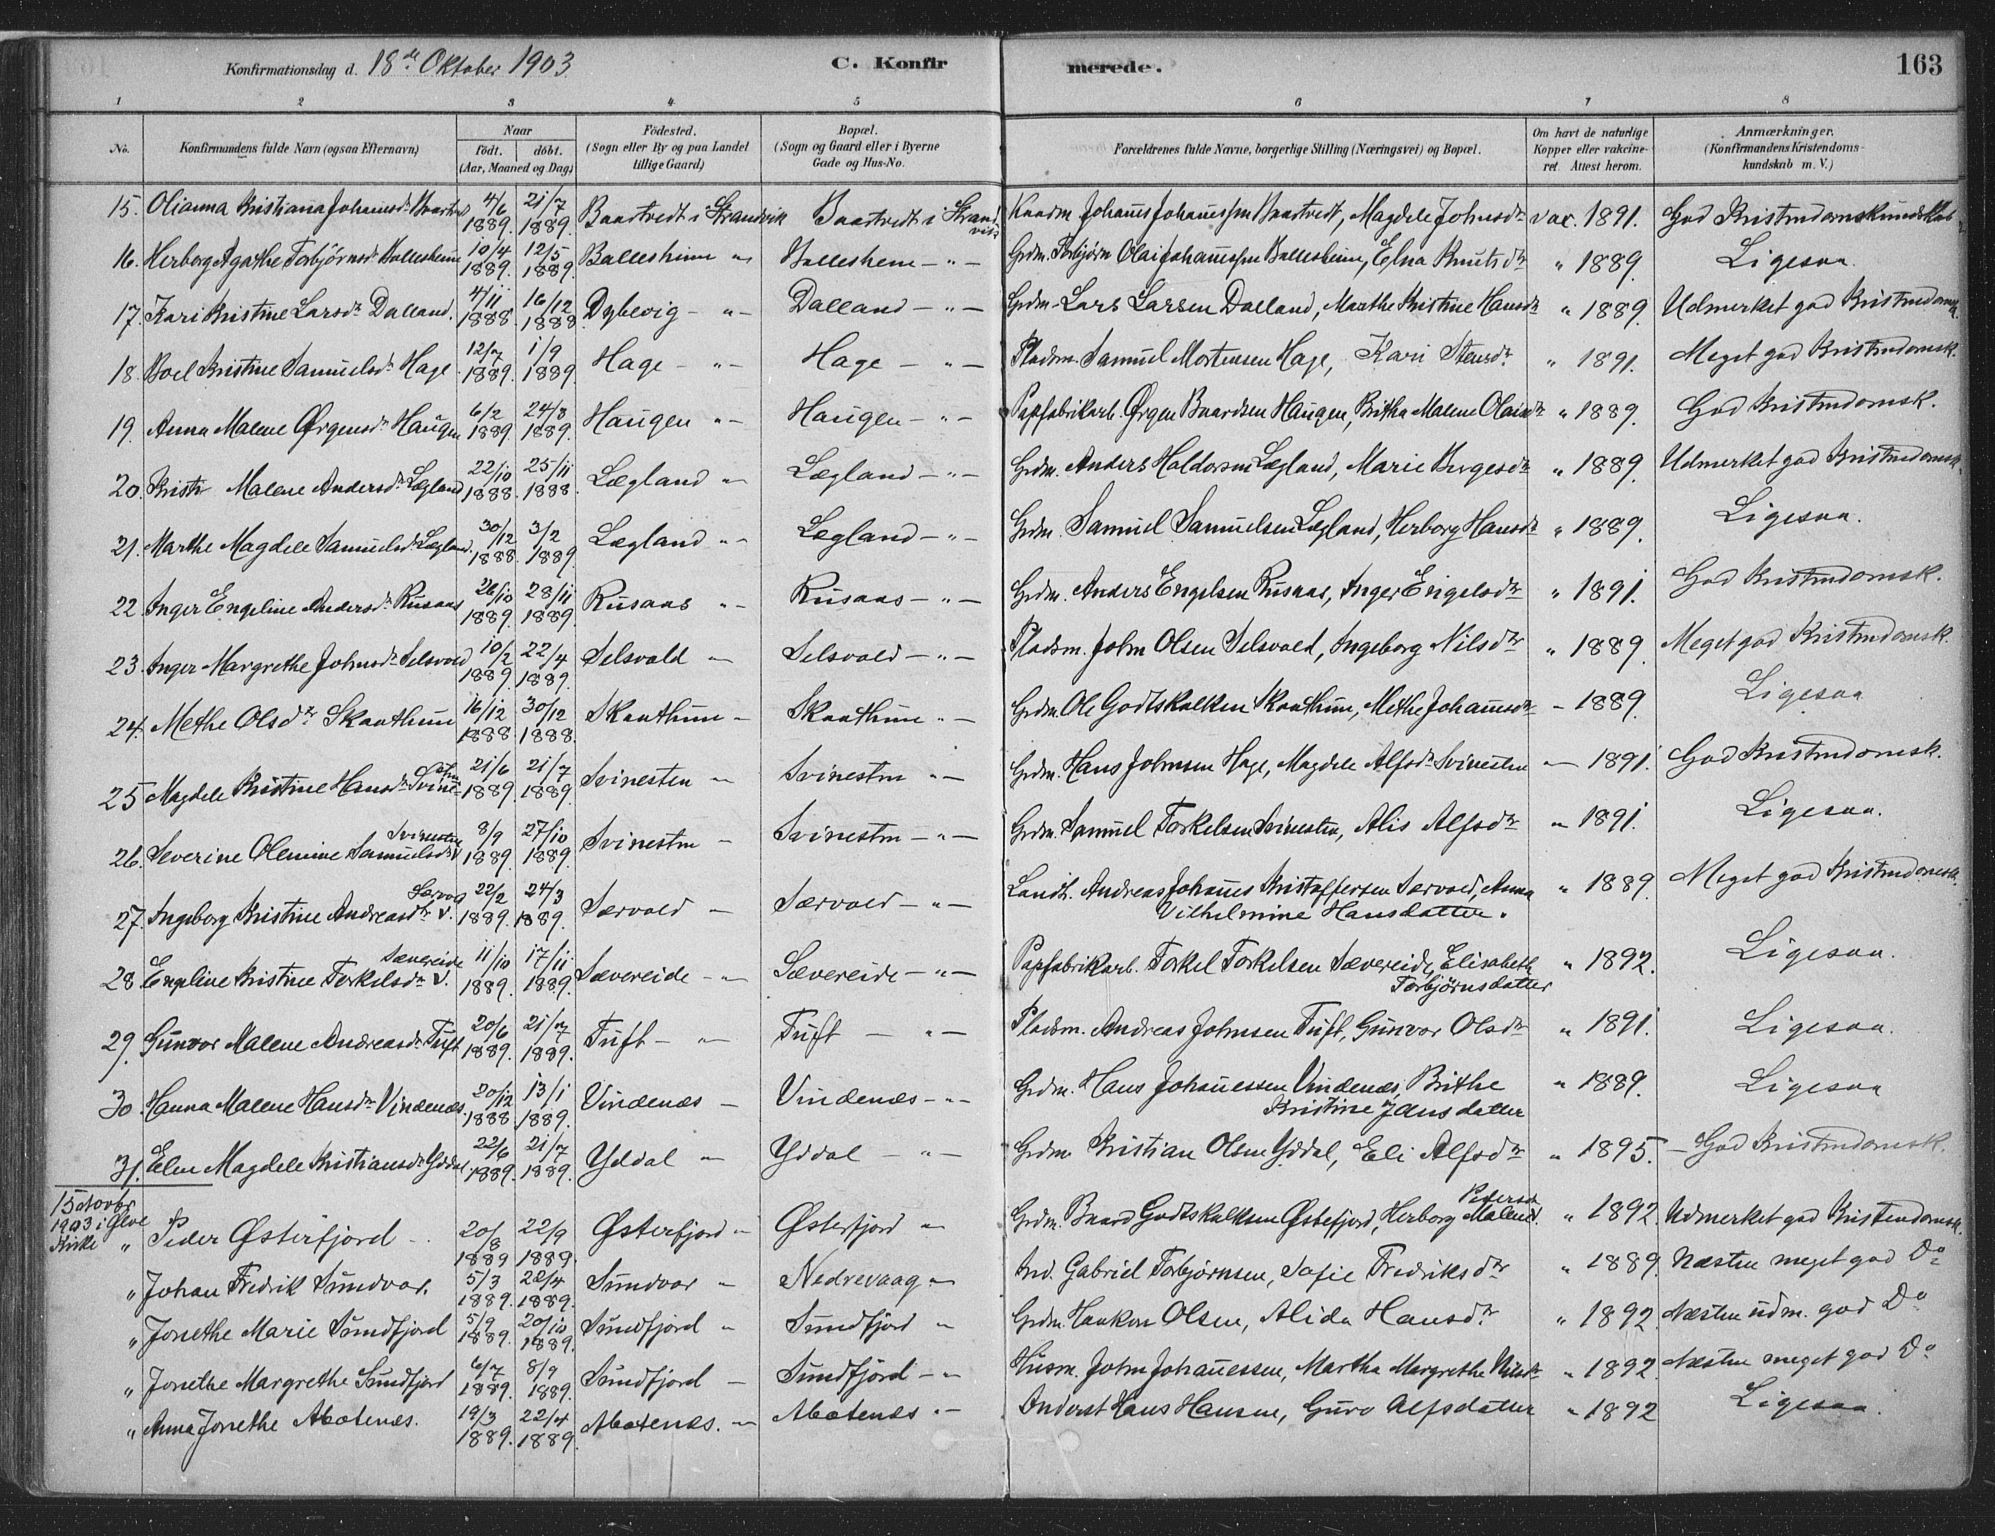 Konfirmationsdag d. 18de Oktober 1903. C. Konfirmerede. 163
1 2 3 4 5 6 7 8
No. Konfirmandens fulde Navn (ogsaa Efternavn) Naar født. døbt. (Aar, Maaned og Dag) Fødested. (Sogn eller By og paa Landet tillige Gaard) Bopæl. (Sogn og Gaard eller i Byerne Gade og Hus-No. Forældrenes fulde Navne, borgerlige Stilling (Næringsvei) og Bopæl. Om havt de naturlige Kopper eller vakcineret. Attest herom. Anmærkninger. (Konfirmandens Kristendomskundskab m. V.)
15. Olianna Kristiana Johannsdr Baastvedt 4/6 1889. 21/7 1889. Baastvedt i Strandvik Baastvedt i Strandvik Johans Johannessen Baastvedt, Magdele Johnsdr vac. 1891. God Kristendomskundskab
16. Herborg Agathe Torbjørnsdr Ballesheim 10/4 1889. 12/5 1889. Ballesheim " Balleshem - " - Grdm. Torbjørn Olai Johannessen Ballesheim, Elna Knutsdtr " 1889. Ligesaa.
17. Kari Kristine Larsdr Dalland. 4/11 1888. 16/12 1888 Dybevig - " - Dalland - " - Grdm. Lars Larsen Dalland, Marthe Kristine Hansdr " 1889. Udmerket god Kristendomsk.
18. Boel Kristine Samuelsdr Hage 12/7 1889. 1/9 1889. Hage - " - Hage - " - Pladsm. Samuel Mortensen Hage, Kari Stensdr " 1891. Meget god Kristendomsk.
19. Anna Malene Ørgensdr Haugen 6/2 1889. 24/8 1889. Haugen " - Haugen - " - Papfabrikarb. Ørgen Baardsen Haugen, Britha Malene Olaisdr " 1889. God Kristendomsk.
20. Kristi Malene Andersdr Lægland 22/10 1888. 25/11 1888. Lægland " Lægland - " - Grdm. Anders Haldorsen Lægland, Marie Børgesdr " 1889. Udmerket god Kristendomsk.
21. Marthe Magdele Samuelsdr Lægland. 30/12 1888. 3/2 1889. Lægland " - Lægland - " - Grdm. Samuel Samuelsen Lægland, Herborg Hansdr " 1889. Ligesaa.
22. Inger Engeline Andersdr Rusaas 26/10 1889. 28/11 1889. Rusaas " - Rusaas - " - Grdm. Anders Engelsen Rusaas, Inger Engelsdr " 1891. God Kristendomsk.
23. Inger Margrethe Johnsdr Selsvold 10/2 1889. 22/4 1889. Selsvold " Selsvold - " - Pladsm. John Olsen Selsvold, Ingeborg Nilsdtr " 1889. Meget god Kristendomsk.
24. Methe Olsdtr Skaathun 16/12 1888. 30/12 1888. Skaathun - Skaathun " - Grdm. Ole Godtskalksen Skaathun, Methe Johannesdr - 1889. Ligesaa
25. Magdele Kristine Hansdr Svinesten 21/6 1889. 21/7 1889. Svinesten " Svinesten " - Grdm. Hans Johnsen Hage, Magdele Alfsdr Svinesten - 1891. God Kristendomsk.
26. Severine Olemine Samuelsdr Svinesten 8/9 1889. 27/10 1889. Svinesten - Svinesten - " - Grdm. Samuel Torkelsen Svinesten, Alis Alfsdr " 1891. Ligesaa.
27. Ingeborg Kristine Andreasdtr Særvold 22/2 1889. 24/3 1889. Særvold - Særvold - " - Landh. Andreas Johannes Kristoffersen Særvold, Anna Vilhelmine Hansdatter. " 1889. Meget god Kristendomsk.
28. Engeline Kristine Torkelsdr Sævereide 11/10 1889. 17/11 1889. Sævereide - " Sævereide - " - Papfabrikarb. Torkel Torkelsen Sævereide, Elisabeth Torbjørnsdatter " 1892. Ligesaa.
29. Gunvor Malene Andreasdr Tuft 20/6 1889. 21/7 1889. Tuft - " - Tuft - " - Pladsm. Andreas Johnsen Tuft, Gunvor Olsdtr " 1891. Ligesaa.
30. Hanna Malene Hansdr Vindenæs. 20/12 1888. 13/1 1889. Vindenæs - Vindenæs - " - Grdm. Hans Johannessen Vindenæs, Brithe Kristine Hansdatter " 1889. Ligesaa
31. Elen Magdele Kristiansdr Yddal 22/6 1889. 21/7 1889. Yddal " Yddal - " - Grdm. Kristian Olsen Yddal, Eli Alfsdtr " 1895. - God Kristendomsk.
15 Novbr 1903 i Øلve Kirke
" Peder Østerfjord 20/8 1889 22/9 1889. Østerfjord - Østerfjord " Grdm. Baard Godtskalksen Østefjord, Herborg Malene Pedersdr. " 1892. Udmerket god Kristendomsk.
" Johan Fredrik Sundvor. 5/3 1889. 22/4 1889. Sundvor " Nedrevaag " Ind. Gabriel Torbjørnsen, Sofie Fredriksdtr " 1889. Næsten meget god Do
" Jonethe Marie Sundfjord 5/9 1889. 20/10 1889. Sundfjord " Sundfjord " Grdm. Haakon Olsen, Alida Hansdtr. " 1892. Næsten udm. god Do
" Jonethe Margrethe Sundfjord 6/7 1889. 8/9 1889. Sundfjord - Sundfjord - " Husm. John Johannessen, Martha Margrethe Nilsdr " 1892. Næsten meget god Do
" Anna Jonethe Abotenæs. 19/3 1889. 22/4 1889. Abotenæs. " Abotenæs " - Hans Hansen, Guro Alfsdatter " 1892 Ligesaa.